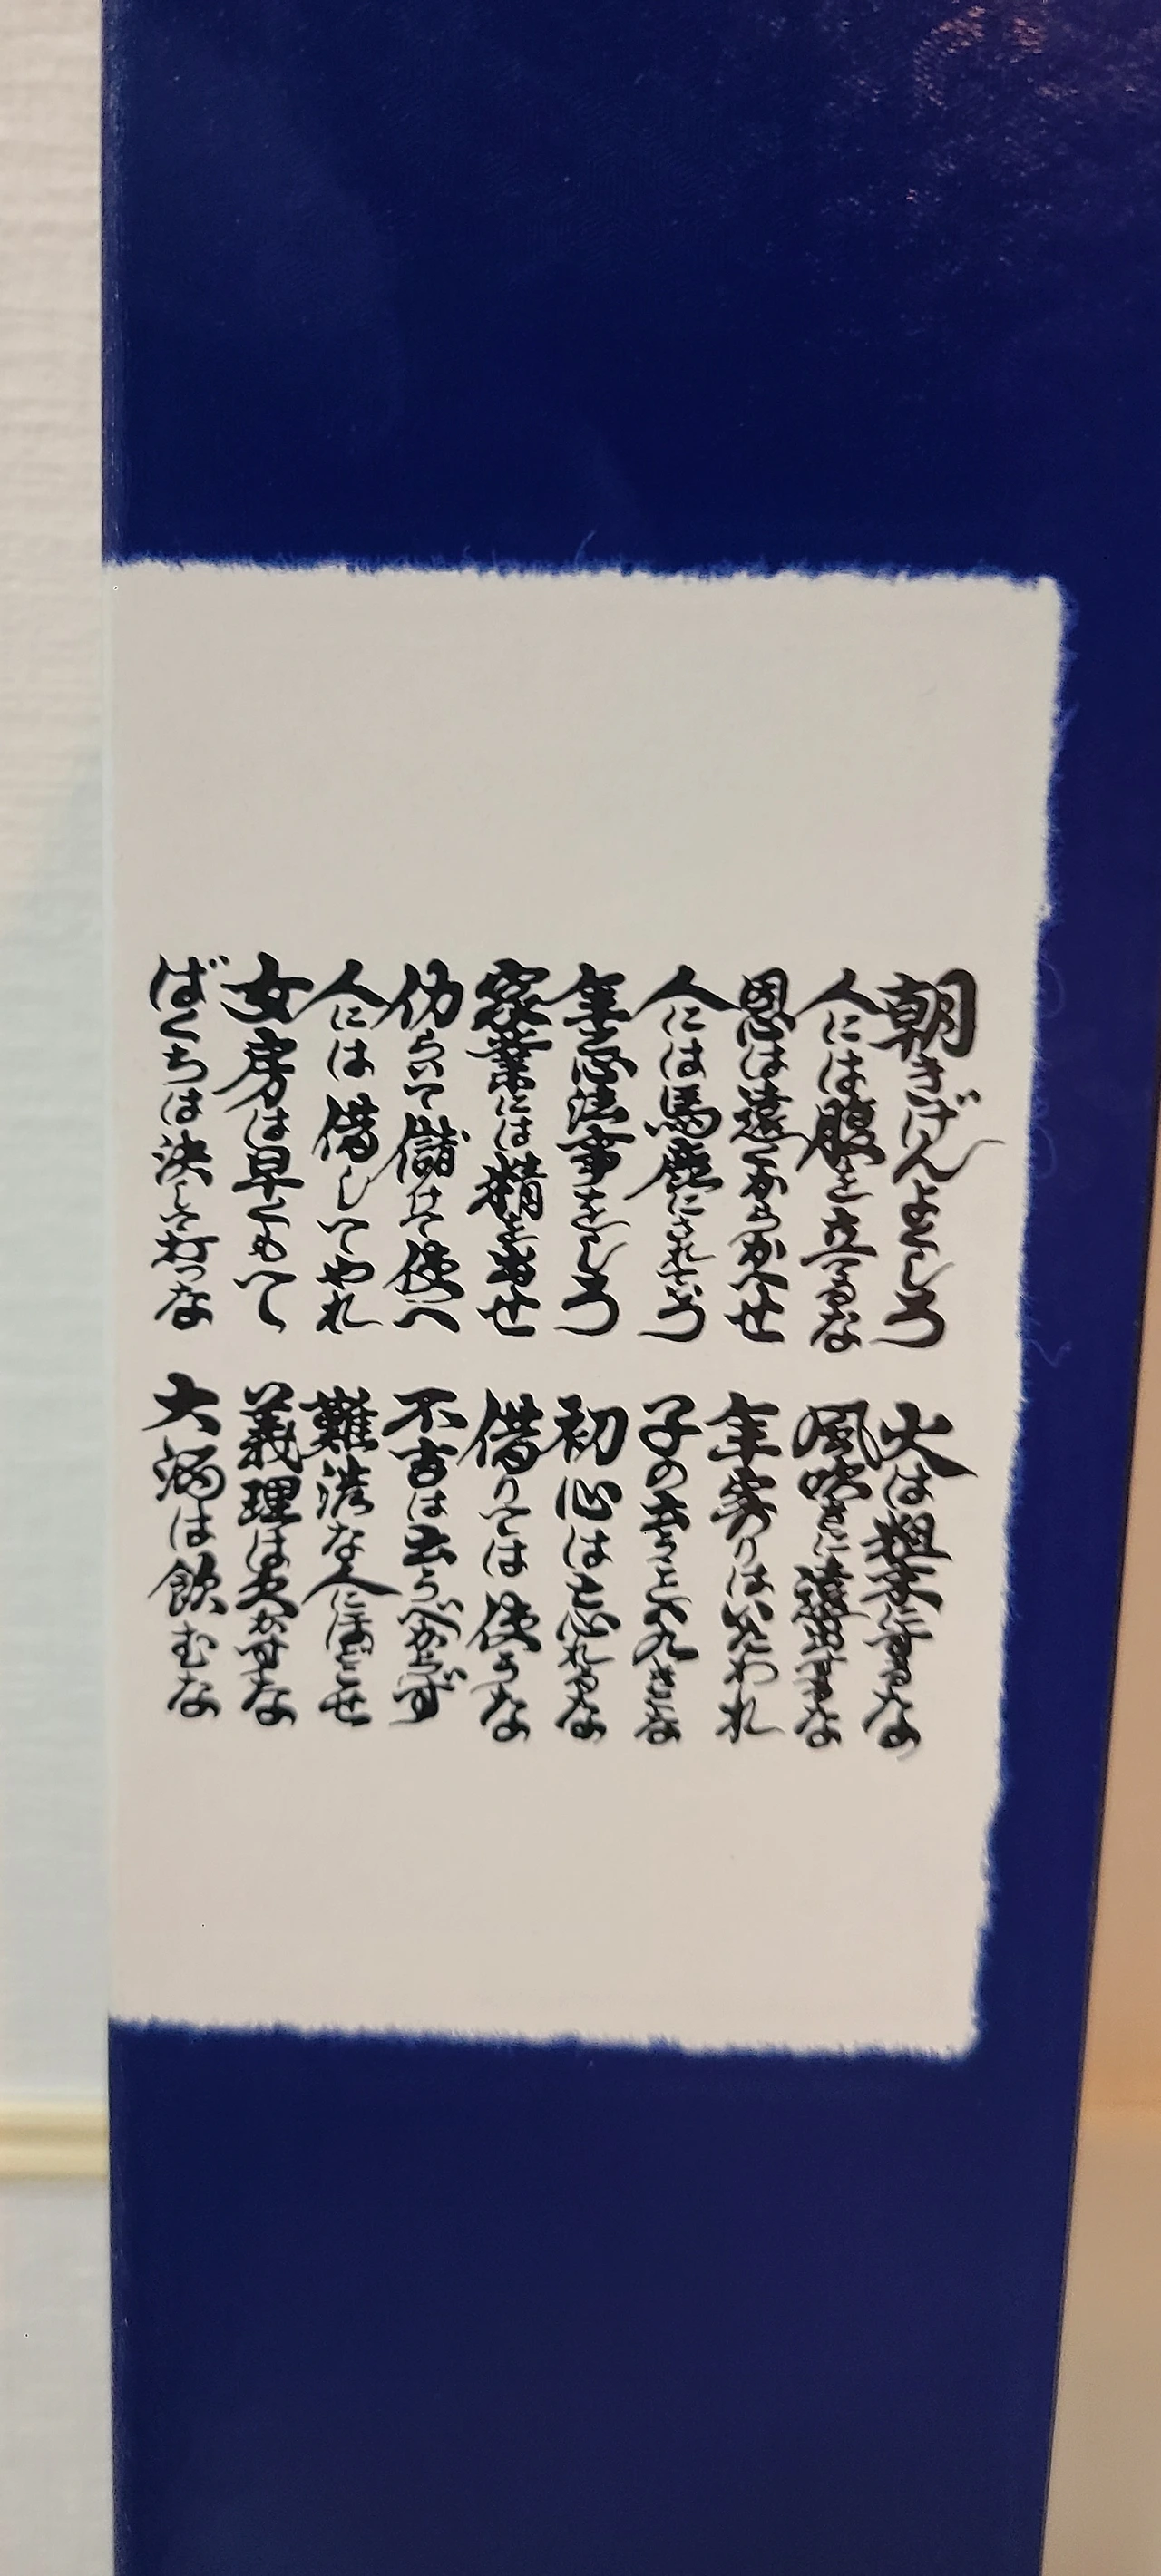 朝きげんよくしろ
人には腹を立てるな
恩は遠くからかへせ
人には馬鹿にされてゐろ
年忌法事をしろ
家業には精を出せ
仂らいて儲けて使へ
人には借してやれ
女房は早くもて
ばくちは決して打つな
火は粗末にするな
風吹きに遠出するな
年寄りはいたわれ
子の云うこと八九きくな
初心は忘れるな
借りては使うな
不吉は云うべからず
難渋な人にほどこせ
義理は欠かすな
大酒は飲むな